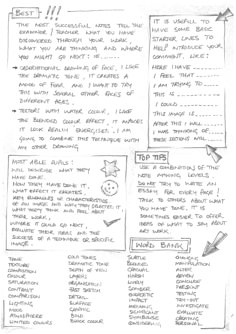 BEST !!!
THE MOST SUCCESSFUL NOTES TELL THE
EXAMINER / TEACHER WHAT YOU HAVE
DISCOVERED THROUGH YOUR WORK,
WHAT YOU ARE THINKING AND WHERE
YOU MIGHT GO NEXT: IE......
OBSERVATIONAL DRAWING OF FACE, I LIKE
THE DRAMATIC TONE, IT CREATES A
MOOD OF FEAR, AND I WANT TO TRY
THIS WITH SEVERAL OTHER FACES OF
DIFFERENT AGES.
TEXTURES WITH WATER COLOUR, I LIKE
THE BLENDED COLOUR EFFECT, IT MAKES
IT LOOK REALLY ENERGISED. I AM
GOING TO COMBINE THIS TECHNIQUE WITH
AN OTHER DRAWING.
IT IS USEFULL TO
HAVE SOME BASIC
STARTER LINES TO
HELP INTRODUCE YOUR
COMMENT, LIKE:
HERE I HAVE ...
I FEEL THAT ...
I AM TRYING TO ...
THIS IS ...
I COULD ...
THIS IMAGE IS ...
AFTER THIS I WILL ...
I WAS THINKING OF ...
THESE SECTIONS WILL
MOST ABLE PUPILS!
WILL DESCRIBE WHAT THEY
HAVE DONE.
HOW THEY HAVE DONE IT.
WHAT EFFECT IT CREATES.
KEY EXAMPLES OF CHARACTERISTICS
OF THE WORK AND HOW THEY CREATED IT.
WHAT THEY THINK AND FEEL ABOUT
THEIR WORK.
WHERE IT COULD GO NEXT.
EVALUATE THEIR IDEAS AND THE
SUCCESS OF A TECHNIQUE OR SPECIFIC
IMAGE.
TOP TIPS
USE A COMBINATION OF THE
NOTE MAKING LEVELS
DO NOT TRY TO WRITE AN
ESSAY FOR EVERY PAGE
TALK TO OTHERS ABOUT WHAT
YOU HAVE DONE, IT IS
SOMETIMES EASIER TO OFFER
IDEAS OF WHAT TO SAY ABOUT
ART WORK.
WORD BANK
TONE
TEXTURE
COMPOSITION
COLOUR
SATURATION
CONTRAST
COMPARISON
LIGHTING
MOOD
ATMOSPHERE
LIMITED
FLAT TONES
DRAMATIC TONE
DEPTH OF VIEW
LAYERS
ORGANISATION
FAST SKETCH
DETAIL
SURFACE
GRAPHIC
BOLD
BLOCK COLOUR
SUBTLE
BLENDED
CASUAL
HARSH
LIVELY
SOMBER
ENERGETIC
IMPACT
MEANING
SIGNIFICANT
CONSIDERED
CHANGING
MANIPULATION
ALTER
REVIEW
CONCLUDE
PRESENT
TESTING
TRY-OUT
INVESTIGATE
EVALUATE
CREATING
PERSONAL